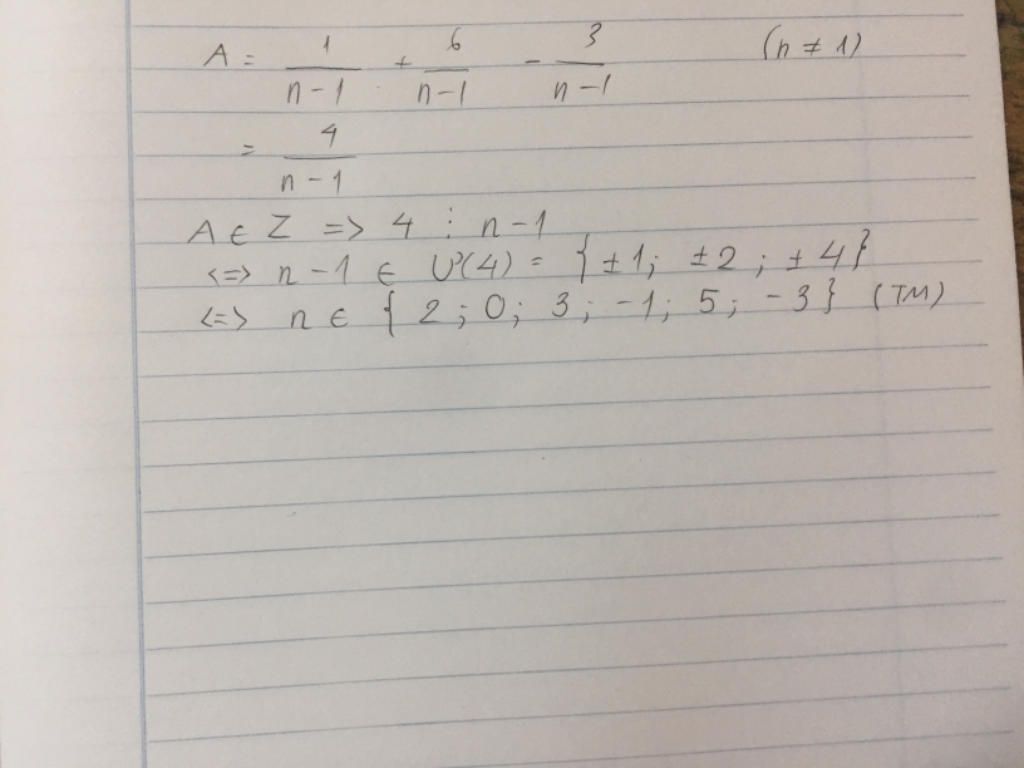 A = 1/(n-1) + 6/(n-1) - 3/(n-1) (n ≠ 1)
= 4/(n-1)
A ∈ Z => 4 ⋮ n-1
<=> n-1 ∈ Ư(4) = {±1; ±2; ±4}
<=> n ∈ {2; 0; 3; -1; 5; -3} (TM)